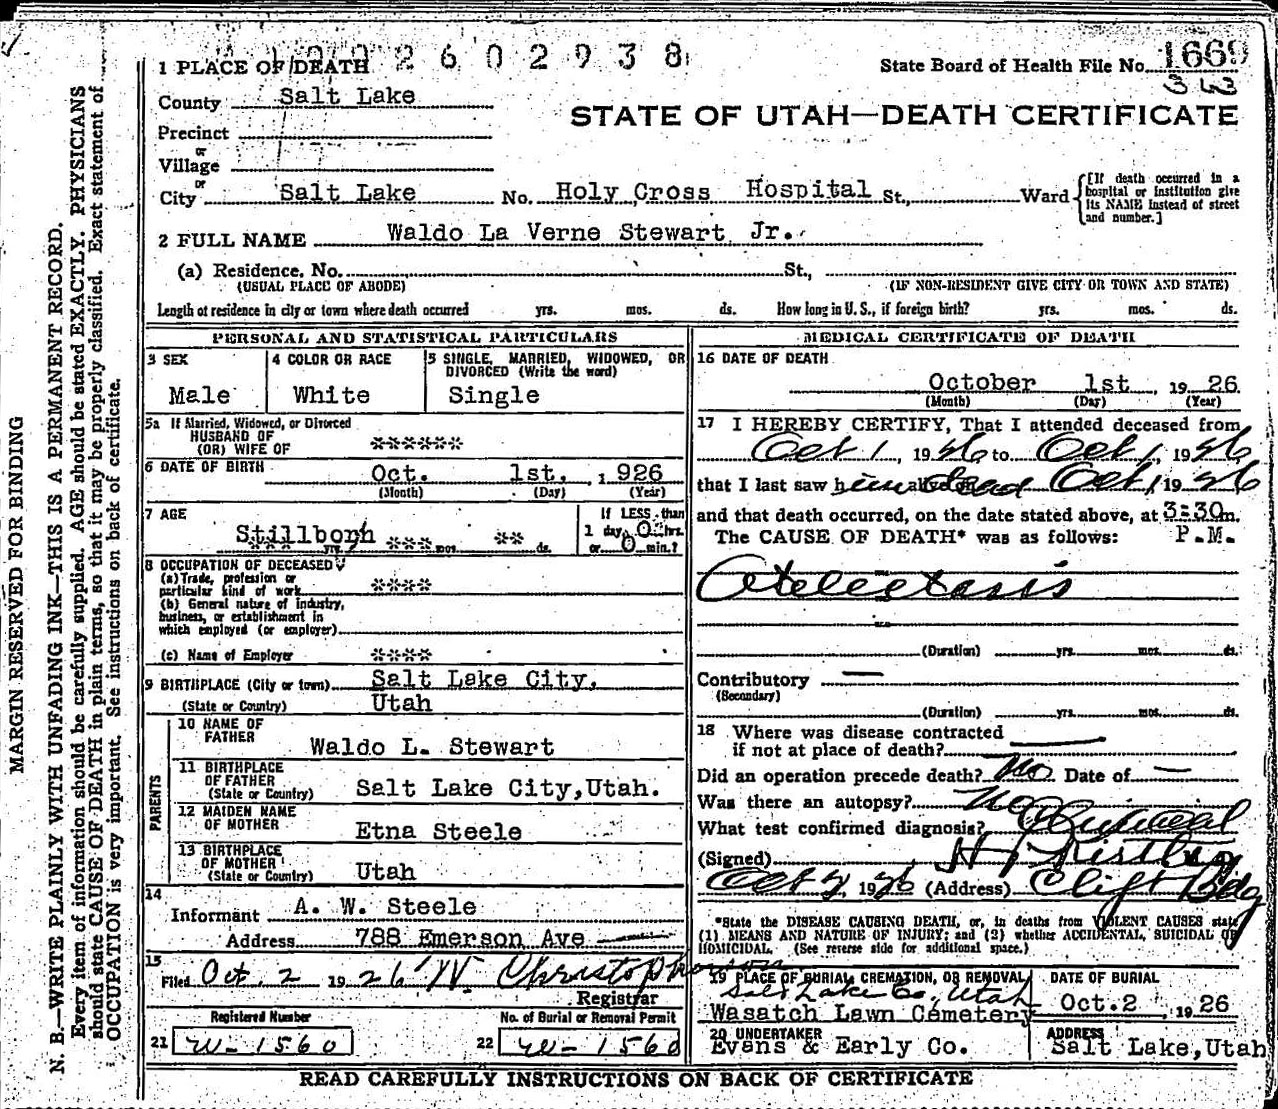 2 6 0 2 9 3 8
1 PLACE OF DEATH
State Board of Health File No. 1669
343
County Salt Lake
STATE OF UTAH—DEATH CERTIFICATE
Precinct
or
Village
or
City Salt Lake No. Holy Cross Hospital St., Ward {[If death occurred in a hospital or institution give its NAME instead of street and number.]
2 FULL NAME Waldo La Verne Stewart Jr.
(a) Residence, No. St.,
(USUAL PLACE OF ABODE) (IF NON-RESIDENT GIVE CITY OR TOWN AND STATE)
Length of residence in city or town where death occurred yrs. mos. ds. How long in U. S., if foreign birth? yrs. mos. ds.
PERSONAL AND STATISTICAL PARTICULARS
3 SEX
Male
4 COLOR OR RACE
White
5 SINGLE, MARRIED, WIDOWED, OR
DIVORCED (Write the word)
Single
5a If Married, Widowed, or Divorced
HUSBAND OF
(OR) WIFE OF ******
6 DATE OF BIRTH Oct. 1st, 1926
(Month) (Day) (Year)
7 AGE
Stillborn
*** yrs. *** mos. ** ds.
If LESS than
1 day, 0 hrs.
or 0 min.?
8 OCCUPATION OF DECEASED
(a) Trade, profession or
particular kind of work ****
(b) General nature of industry,
business, or establishment in
which employed (or employer)
(c) Name of Employer ****
9 BIRTHPLACE (City or town) Salt Lake City,
(State or Country) Utah
PARENTS
10 NAME OF
FATHER Waldo L. Stewart
11 BIRTHPLACE
OF FATHER
(State or Country) Salt Lake City, Utah.
12 MAIDEN NAME
OF MOTHER Etna Steele
13 BIRTHPLACE
OF MOTHER
(State or Country) Utah
14
Informant A. W. Steele
Address 788 Emerson Ave
15
Filed Oct. 2 1926 W. Christopherson
Registrar
Registered Number No. of Burial or Removal Permit
21 W-1560 22 W-1560
MEDICAL CERTIFICATE OF DEATH
16 DATE OF DEATH
October 1st 1926
(Month) (Day) (Year)
17 I HEREBY CERTIFY, That I attended deceased from
Oct 1, 1926 to Oct 1, 1926
that I last saw him dead Oct 1, 1926
and that death occurred, on the date stated above, at 3:30 m.
The CAUSE OF DEATH* was as follows: P.M.
Atelectasis
(Duration) yrs. mos. ds.
Contributory —
(Secondary)
(Duration) yrs. mos. ds.
18 Where was disease contracted
if not at place of death?
Did an operation precede death? No Date of —
Was there an autopsy? No
What test confirmed diagnosis? Physical
(Signed)
Oct 2, 1926 (Address) Clift Bldg
*State the DISEASE CAUSING DEATH, or, in deaths from VIOLENT CAUSES state
(1) MEANS AND NATURE OF INJURY; and (2) whether ACCIDENTAL, SUICIDAL OR
HOMICIDAL. (See reverse side for additional space.)
19 PLACE OF BURIAL, CREMATION, OR REMOVAL
Salt Lake Co, Utah
Wasatch Lawn Cemetery
DATE OF BURIAL
Oct. 2, 1926
20 UNDERTAKER
Evans & Early Co.
ADDRESS
Salt Lake, Utah
READ CAREFULLY INSTRUCTIONS ON BACK OF CERTIFICATE
MARGIN RESERVED FOR BINDING
N. B.—WRITE PLAINLY WITH UNFADING INK—THIS IS A PERMANENT RECORD.
Every item of information should be carefully supplied. AGE should be stated EXACTLY. PHYSICIANS
should state CAUSE OF DEATH in plain terms, so that it may be properly classified. Exact statement of
OCCUPATION is very important. See instructions on back of certificate.